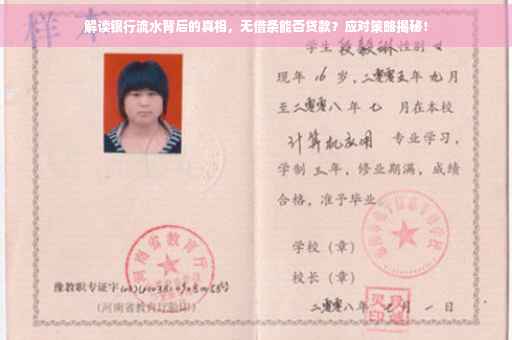 解读银行流水背后的真相，无借条能否贷款？应对策略揭秘！
样本
学生段毅琳性别女
现年16岁，二零零五年九月
至二零零八年七月在本校
计算机应用 专业学习，
学制三年，修业期满，成绩
合格，准予毕业。
学校（章）
校长（章）
二零零八年七月一日
河南省教育厅
豫教职专证字
（河南省教育厅验印）